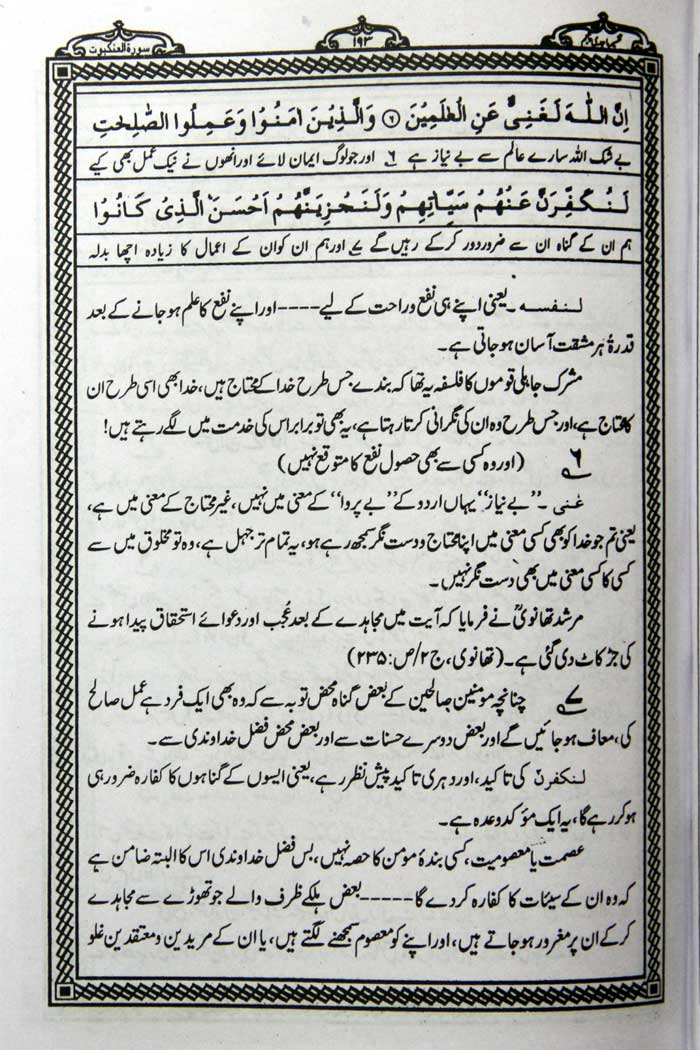 سورة العنكبوت
۱۹۳
اِنَّ اللّٰہَ لَغَنِیٌّ عَنِ الْعٰلَمِیْنَ ﴿۶﴾ وَالَّذِیْنَ اٰمَنُوْا وَعَمِلُوا الصّٰلِحٰتِ
بے شک اللہ سارے عالم سے بے نیاز ہے ۶ اور جولوگ ایمان لائے اور انھوں نے نیک عمل بھی کیے
لَنُکَفِّرَنَّ عَنْہُمْ سَیِّاٰتِہِمْ وَلَنَجْزِیَنَّہُمْ اَحْسَنَ الَّذِیْ کَانُوْا
ہم ان کے گناہ ان سے ضرور دور کرکے رہیں گے ۷ اور ہم ان کو ان کے اعمال کا زیادہ اچھا بدلہ
لنفسه ۔ یعنی اپنے ہی نفع وراحت کے لیے ---- اور اپنے نفع کا علم ہوجانے کے بعد
قدرۃً ہر مشقت آسان ہوجاتی ہے۔
مشرک جاہلی قوموں کا فلسفہ یہ تھا کہ بندے جس طرح خدا کے محتاج ہیں، خدا بھی اسی طرح ان
کا محتاج ہے، اور جس طرح وہ ان کی نگرانی کرتا رہتا ہے، یہ بھی تو برابر اس کی خدمت میں لگے رہتے ہیں!
۶ (اور وہ کسی سے بھی حصول نفع کا متوقع نہیں)
غنی ۔ ”بے نیاز“ یہاں اردو کے ”بے پروا“ کے معنی میں نہیں، غیر محتاج کے معنی میں ہے،
یعنی تم جو خدا کو بھی کسی معنی میں اپنا محتاج ودست نگر سمجھ رہے ہو، یہ تمام تر جہل ہے، وہ تو مخلوق میں سے
کسی کا کسی معنی میں بھی دست نگر نہیں۔
مرشد تھانویؒ نے فرمایا کہ آیت میں مجاہدے کے بعد عُجب اور دعوائے استحقاق پیدا ہونے
کی جڑ کاٹ دی گئی ہے۔ (تھانوی، ج۲/ص:۲۳۵)
۷ چنانچہ مومنین صالحین کے بعض گناہ محض توبہ سے کہ وہ بھی ایک فرد ہے عمل صالح
کی، معاف ہوجائیں گے اور بعض دوسرے حسنات سے اور بعض محض فضل خداوندی سے۔
لنکفرنّ کی تاکید، اور دہری تاکید پیش نظر رہے، یعنی ایسوں کے گناہوں کا کفارہ ضرور ہی
ہوکر رہے گا، یہ ایک مؤکد وعدہ ہے۔
عصمت یا معصومیت، کسی بندۂ مومن کا حصہ نہیں، بس فضل خداوندی اس کا البتہ ضامن ہے
کہ وہ ان کے سیئات کا کفارہ کردے گا ----- بعض ہلکے ظرف والے جو تھوڑے سے مجاہدے
کرکے ان پر مغرور ہوجاتے ہیں، اور اپنے کو معصوم سمجھنے لگتے ہیں، یا ان کے مریدین ومعتقدین غلو